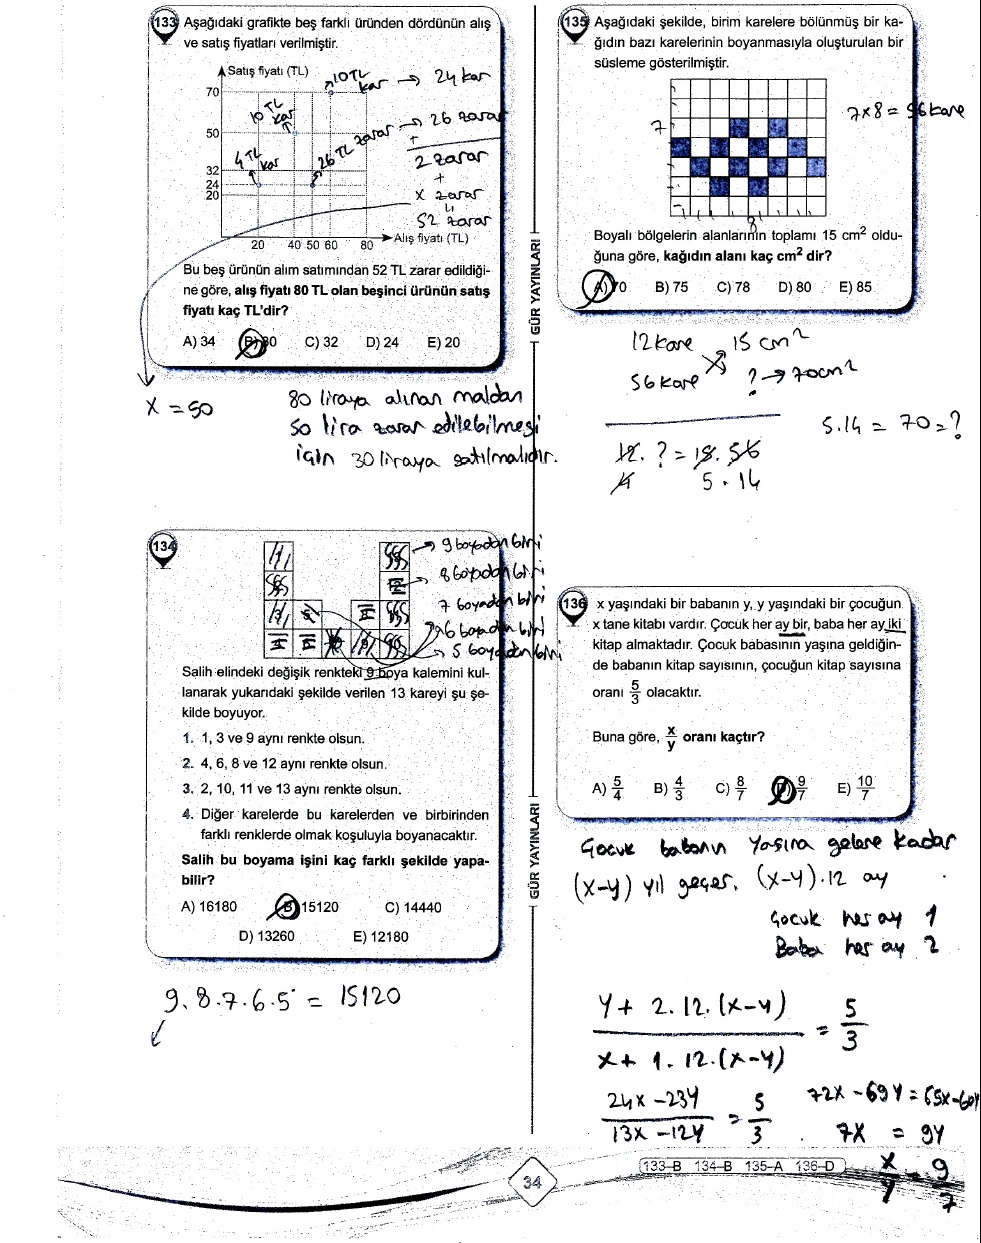 133 Aşağıdaki grafikte beş farklı üründen dördünün alış
ve satış fiyatları verilmiştir.
Satış fiyatı (TL)
70
50
32
24
20
20 40 50 60 80
Alış fiyatı (TL)
10 TL kar → 24 kar
10 TL kar
4 TL kar
26 TL zarar → 26 zarar
+
2 zarar
+
x zarar
52 zarar
Bu beş ürünün alım satımından 52 TL zarar edildiği-
ne göre, alış fiyatı 80 TL olan beşinci ürünün satış
fiyatı kaç TL'dir?
A) 34 B) 30 C) 32 D) 24 E) 20
x = 50
80 liraya alınan maldan
50 lira zarar edilebilmesi
için 30 liraya satılmalıdır.
134
9 boyadan biri
8 boyadan biri
7 boyadan biri
6 boyadan biri
5 boyadan biri
Salih elindeki değişik renkteki 9 boya kalemini kul-
lanarak yukarıdaki şekilde verilen 13 kareyi şu şe-
kilde boyuyor.
1. 1, 3 ve 9 aynı renkte olsun.
2. 4, 6, 8 ve 12 aynı renkte olsun.
3. 2, 10, 11 ve 13 aynı renkte olsun.
4. Diğer karelerde bu karelerden ve birbirinden
farklı renklerde olmak koşuluyla boyanacaktır.
Salih bu boyama işini kaç farklı şekilde yapa-
bilir?
A) 16180 B) 15120 C) 14440
D) 13260 E) 12180
9.8.7.6.5 = 15120
GÜR YAYINLARI
GÜR YAYINLARI
135 Aşağıdaki şekilde, birim karelere bölünmüş bir ka-
ğıdın bazı karelerinin boyanmasıyla oluşturulan bir
süsleme gösterilmiştir.
7
8
7x8 = 56 kare
Boyalı bölgelerin alanlarının toplamı 15 cm² oldu-
ğuna göre, kağıdın alanı kaç cm² dir?
A) 70 B) 75 C) 78 D) 80 E) 85
12 kare 15 cm²
56 kare ? → 70 cm²
12 . ? = 15 . 56
4 5 . 14
5.14 = 70 = ?
136 x yaşındaki bir babanın y, y yaşındaki bir çocuğun
x tane kitabı vardır. Çocuk her ay bir, baba her ay iki
kitap almaktadır. Çocuk babasının yaşına geldiğin-
de babanın kitap sayısının, çocuğun kitap sayısına
oranı 5/3 olacaktır.
Buna göre, x/y oranı kaçtır?
A) 5/4 B) 4/3 C) 8/7 D) 9/7 E) 10/7
Çocuk babanın yaşına gelene kadar
(x-y) yıl geçer. (x-y).12 ay
Çocuk her ay 1
Baba her ay 2
y + 2.12.(x-y) / x + 1.12.(x-y) = 5/3
24x - 23y / 13x - 12y = 5/3
72x - 69y = 65x - 60y
7x = 9y
x/y = 9/7
133–B 134–B 135–A 136–D
34